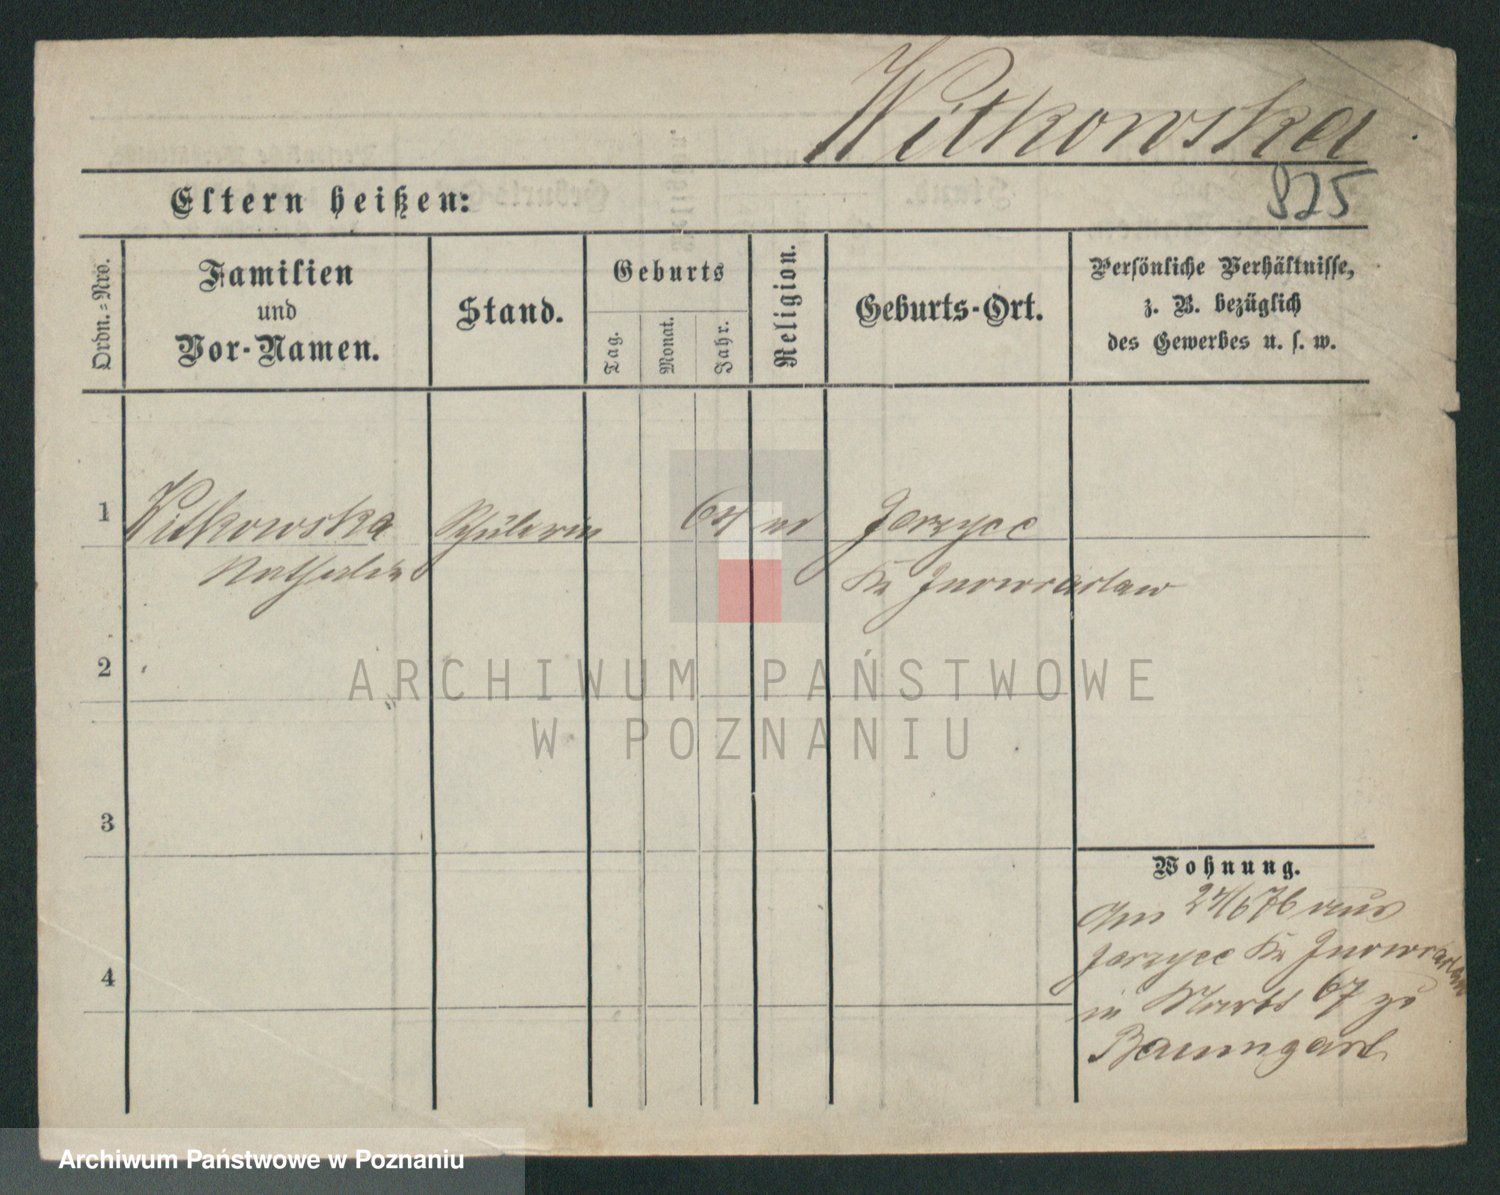 Witkowska
825
Eltern heißen:
Ordn.=Nro.
Familien
und
Vor-Namen.
Stand.
Geburts
Tag.
Monat.
Jahr.
Religion.
Geburts-Ort.
Persönliche Verhältnisse,
z. B. bezüglich
des Gewerbes u. s. w.
1
Witkowska Schülerin 64 Jerzyce
Kr Inowraclaw
2
ARCHIWUM PAŃSTWOWE
W POZNANIU
3
4
Wohnung.
Am 24/6 76 aus
Jerzyce Kr Inowraclaw
in 67 zu
Baumgart
Archiwum Państwowe w Poznaniu